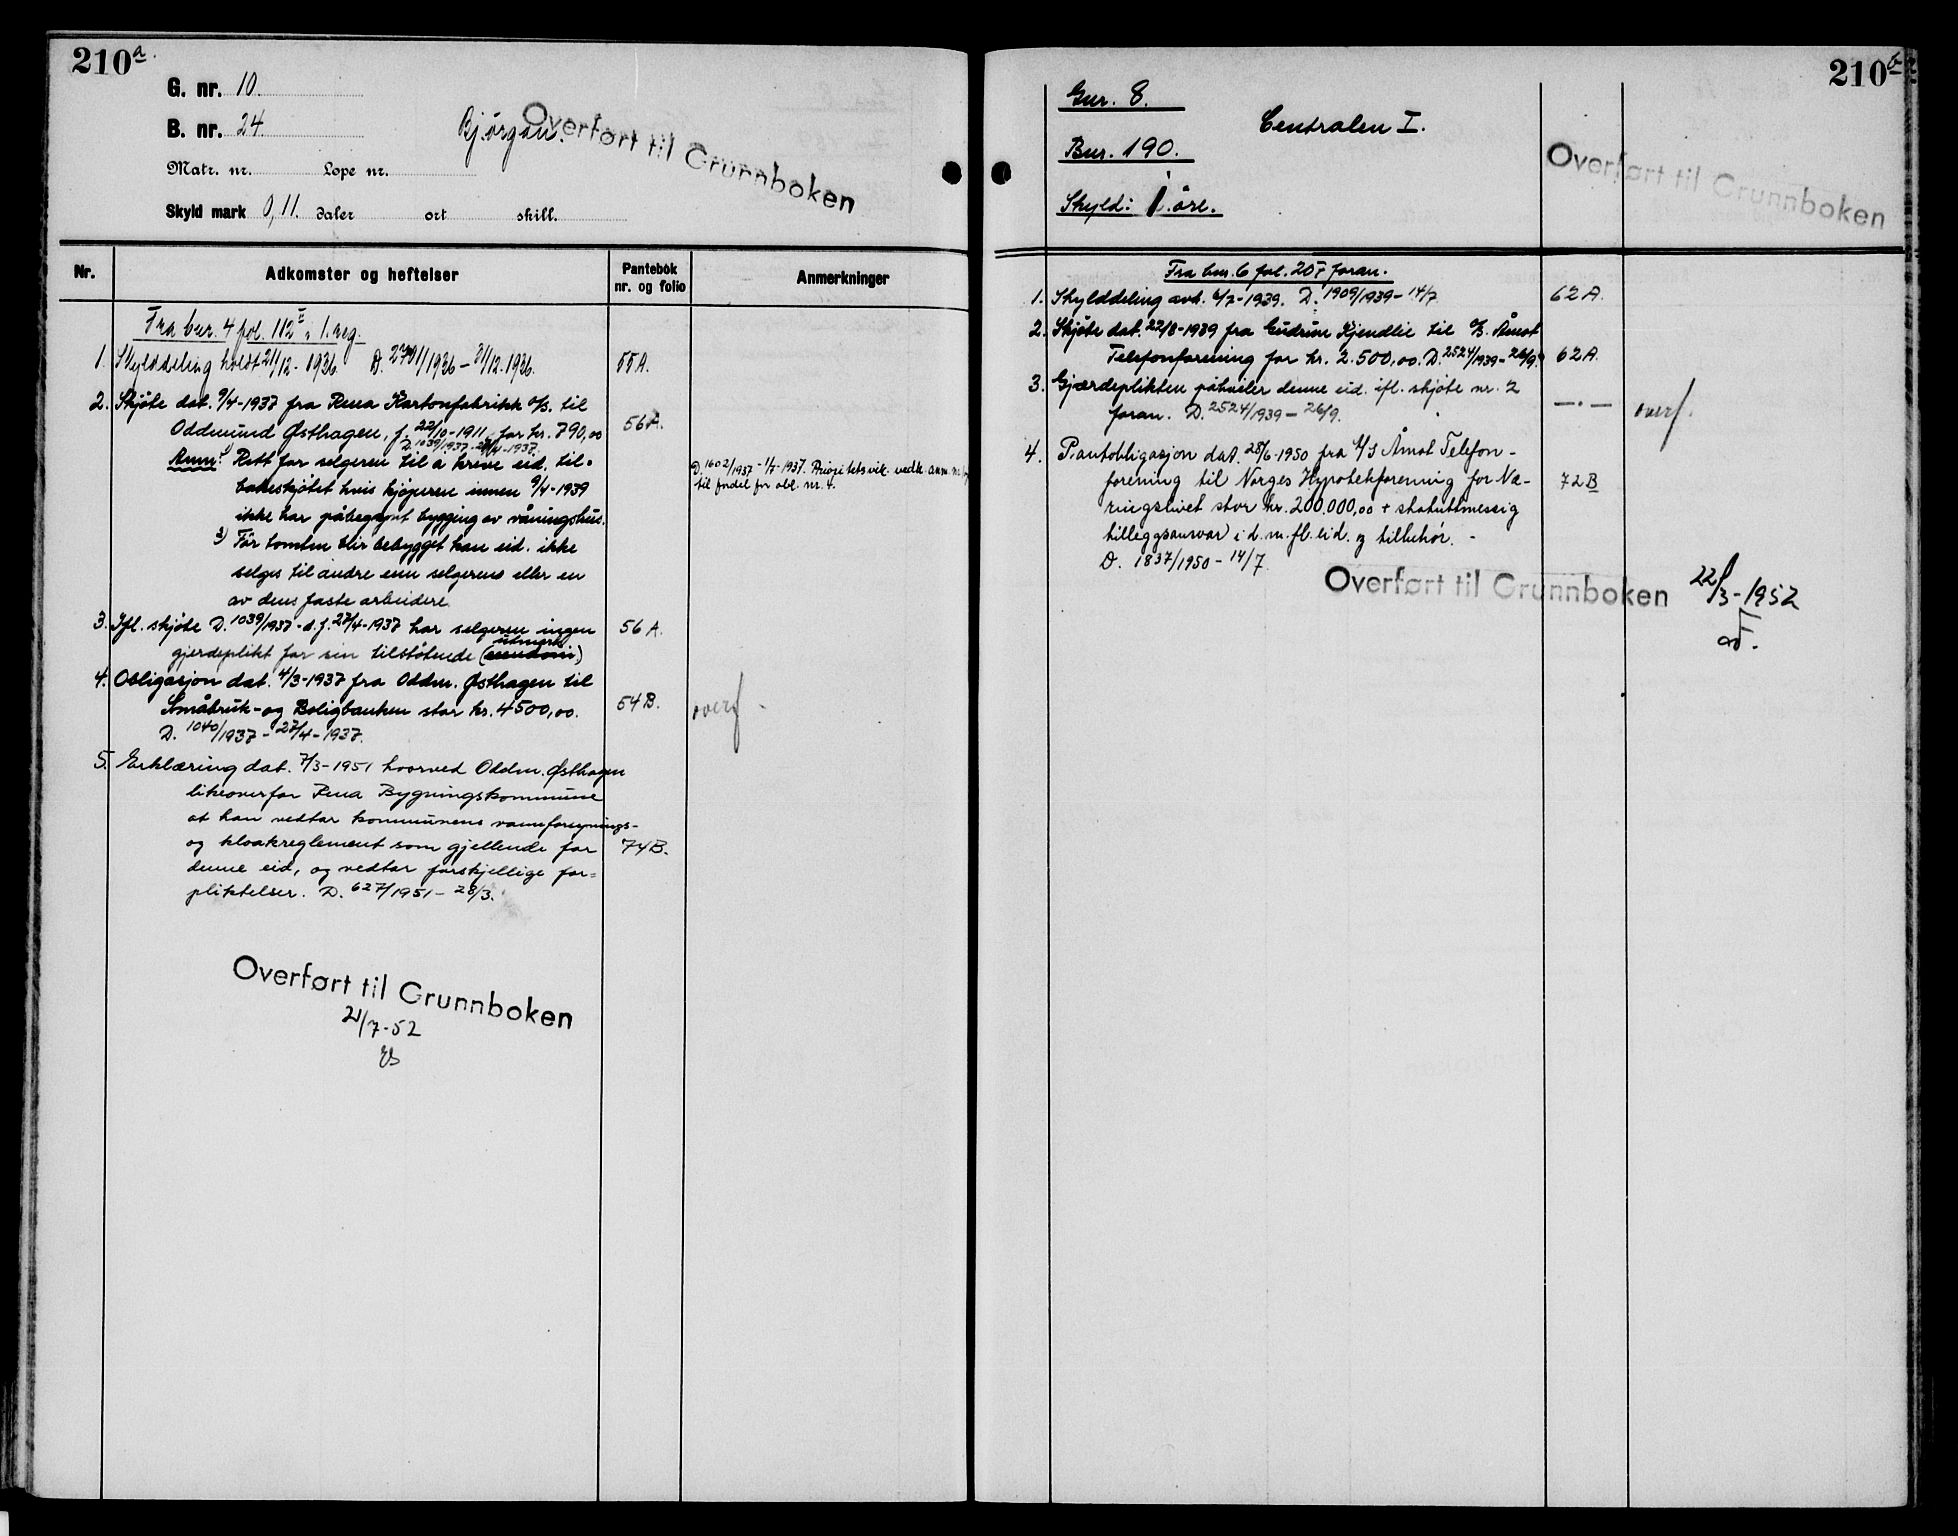 210a
G. nr. 10.
B. nr. 24
Bjørgan.
Overført til Grunnboken
Matr. nr. Løpe nr.
Skyld mark 0,11. daler ort skill.
Nr. Adkomster og heftelser Pantebok nr. og folio Anmerkninger
Fra bnr. 4 fol. 112 I, 1. reg.
1. Skylddeling holdt 21/12-1936. D. 2791/1936 – 31/12.1936. 55A.
2. Skjøte dat. 9/4-1937 fra Rena Kartonfabrikk a/s. til
Oddmund Østhagen, f. 22/10-1911, for kr. 790,00 56A.
D. 1039/1937 - 27/4-1937.
Anm: 1) Rett for selgeren til å kreve eid. til-
bakeskjøtet hvis kjøperen innen 9/4-1939
ikke har påbegynt bygging av våningshus.
2) Før tomten blir bebygget kan eid. ikke
selges til andre enn selgerens eller en
av dens faste arbeidere.
D. 1602/1937 - 1/7-1937. Prioritetsvik. vedk. anm.
til fordel for obl. nr. 4.
3. Ifl. skjøte D. 1039/1937 - d.f. 27/4-1937 har selgeren ingen 56A.
utmark
gjerdeplikt for sin tilstøtende (eiendom)
4. Obligasjon dat. 4/3-1937 fra Oddm. Østhagen til
Småbruk- og Boligbanken stor kr. 4500,00. 54B. overf.
D. 1040/1937 - 27/4-1937.
5. Erklæring dat. 7/3-1951 hvorved Oddm. Østhagen
likeoverfor Rena Bygningskommune
at han vedtar kommunens vannforsynings-
og kloakreglement som gjellende for 74B.
denne eid, og vedtar forskjellige for-
pliktelser. D. 627/1951 - 28/3.
Overført til Grunnboken
21/7-52
210b
Gnr. 8.
Centralen I.
Bnr. 190.
Skyld: 1 øre.
Overført til Grunnboken
Fra bnr. 6 fol. 207 foran.
1. Skylddeling avh. 6/7-1939. D. 1909/1939 - 14/7 62A.
2. Skjøte dat. 22/8-1939 fra Gudrun Kjendlie til a/s. Åmot
Telefonforening for kr. 2.500,00. D. 2524/1939 - 26/9. 62A.
3. Gjærdeplikten påhviler denne eid. ifl. skjøte nr. 2
foran. D. 2524/1939 - 26/9. — . — overf.
4. Pantobligasjon dat. 28/6-1950 fra A/S Åmot Telefon-
forening til Norges Hypotekforening for Næ- 72B
ringslivet stor kr. 200.000,00 + statuttmessig
tilleggsansvar i d. m. fl. eid. og tilbehør. -
D. 1837/1950 - 14/7.
Overført til Grunnboken 22/3-1952